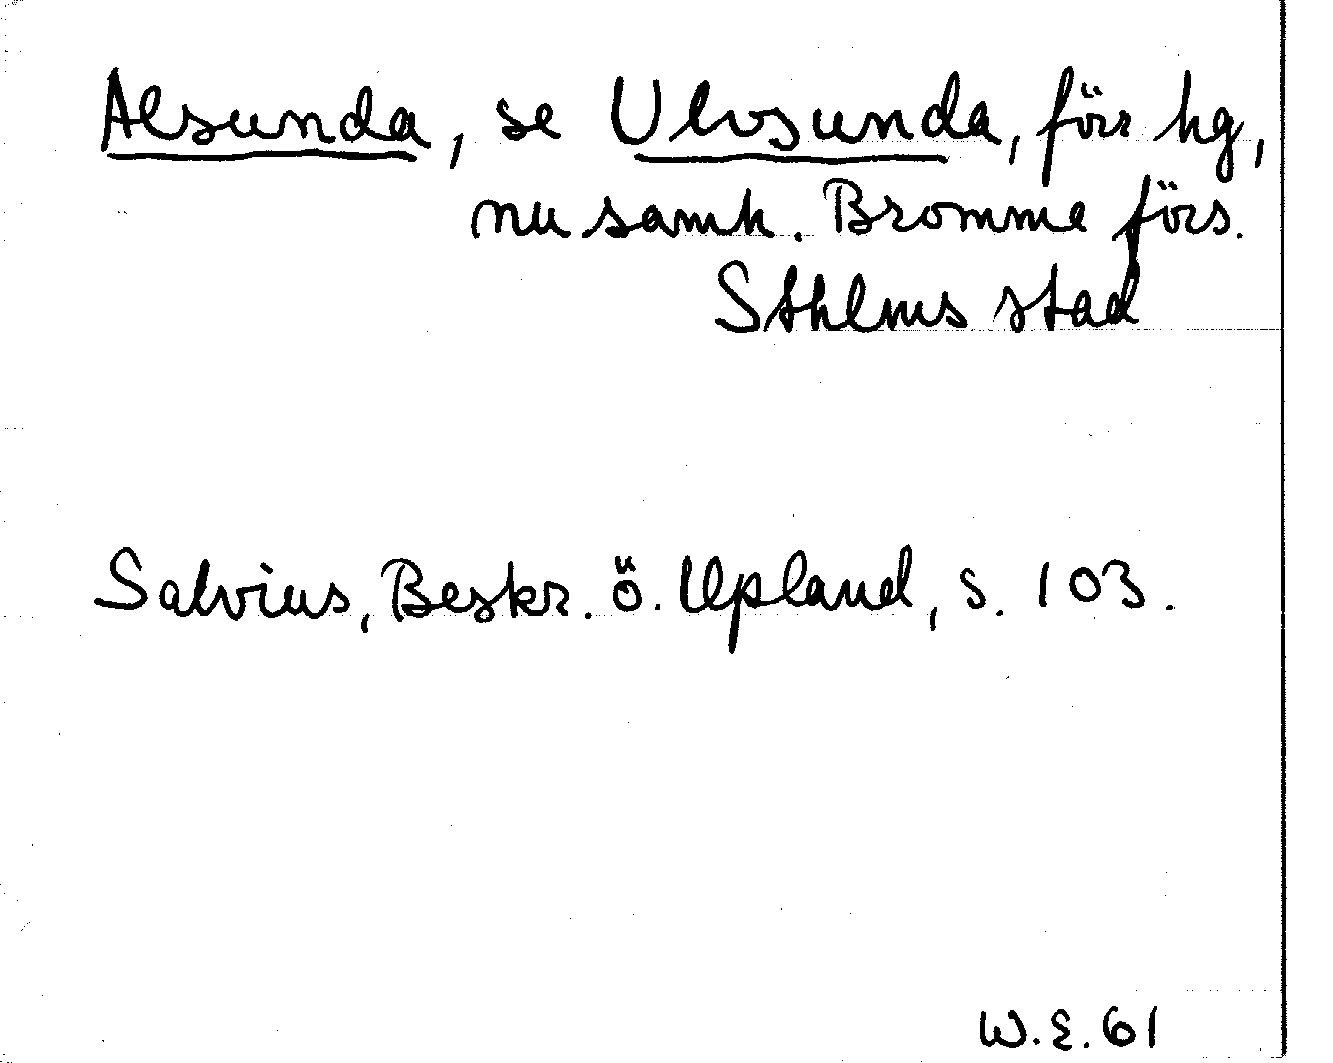 Alsunda, se Ulvsunda, förr hg,
nu samh. Bromma förs.
Sthlms stad
Salvius, Beskr. ö. Upland, s. 103.
W.E. 61